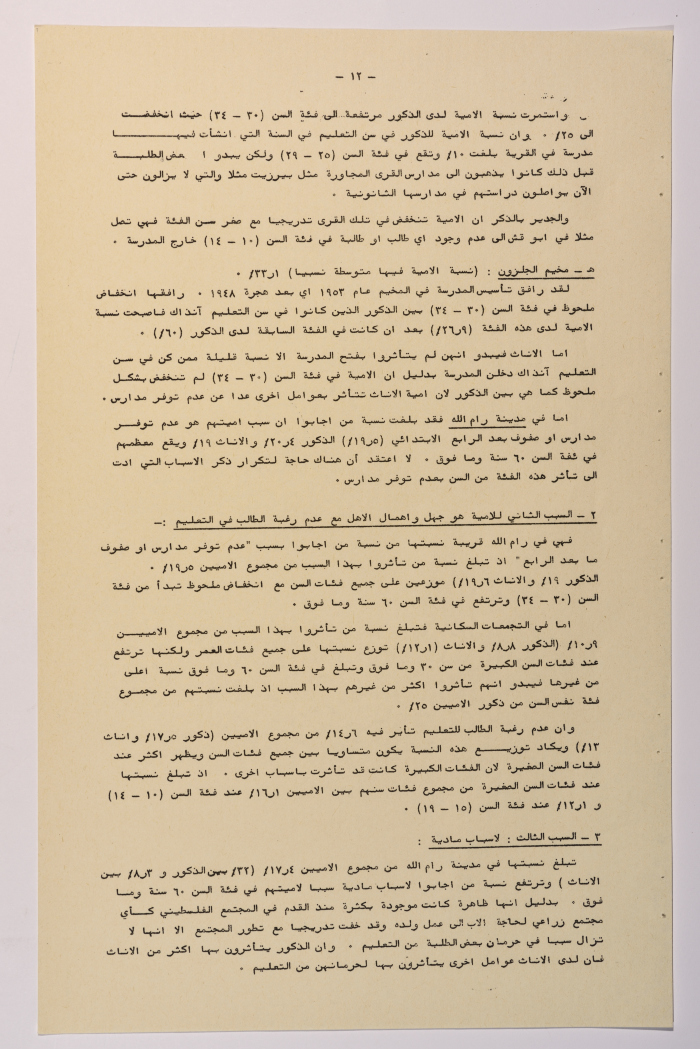 - ١٢ -
واستمرت نسبة الامية لدى الذكور مرتفعة الى فئة السن (٣٠ - ٣٤) حيث انخفضت
الى ٢٥٪ . وان نسبة الامية للذكور في سن التعليم في السنة التي انشأت فيها
مدرسة في القرية بلغت ١٠٪ وتقع في فئة السن (٢٥ - ٢٩) ولكن يبدو ا عض الطلبة
قبل ذلك كانوا يذهبون الى مدارس القرى المجاورة مثل بيرزيت مثلا والتي لا يزالون حتى
الآن يواصلون دراستهم في مدارسها الثانونية .
والجدير بالذكر ان الامية تنخفض في تلك القرى تدريجيا مع صغر سن الفئة فهي تصل
مثلا في ابو قش الى عدم وجود اي طالب او طالبة في فئة السن (١٠ - ١٤) خارج المدرسة .
هـ - مخيم الجلزون : (نسبة الامية فيها متوسطة نسبيا) ٣٣٫١٪ .
لقد رافق تأسيس المدرسة في المخيم عام ١٩٥٣ اي بعد هجرة ١٩٤٨ . رافقها انخفاض
ملحوظ في فئة السن (٣٠ - ٣٤) بين الذكور الذين كانوا في سن التعليم آنذاك فاصبحت نسبة
الامية لدى هذه الفئة (٢٦٫٩٪) بعد ان كانت في الفئة السابقة لدى الذكور (٦٠٪) .
اما الاناث فيبدو انهن لم يتأثروا بفتح المدرسة الا نسبة قليلة ممن كن في سن
التعليم آنذاك دخلن المدرسة بدليل ان الامية في فئة السن (٣٠ - ٣٤) لم تنخفض بشكل
ملحوظ كما هي بين الذكور لان امية الاناث تتأثر بعوامل اخرى عدا عن عدم توفر مدارس .
اما في مدينة رام الله فقد بلغت نسبة من اجابوا ان سبب اميتهم هو عدم توفر
مدارس او صفوف بعد الرابع الابتدائي (١٩٫٥٪) الذكور ٢٠٫٤٪ والاناث ١٩٪ ويقع معظمهم
في فئة السن ٦٠ سنة وما فوق . لا اعتقد أن هناك حاجة لتكرار ذكر الاسباب التي ادت
الى تأثر هذه الفئة من السن بعدم توفر مدارس .
٢ - السبب الثاني للامية هو جهل واهمال الاهل مع عدم رغبة الطالب في التعليم :-
فهي في رام الله قريبة نسبتها من نسبة من اجابوا بسبب "عدم توفر مدارس او صفوف
ما بعد الرابع" اذ تبلغ نسبة من تأثروا بهذا السبب من مجموع الاميين ١٩٫٥٪ .
الذكور ١٩٪ والاناث ١٩٫٦٪) موزعين على جميع فئات السن مع انخفاض ملحوظ تبدأ من فئة
السن (٣٠ - ٣٤) وترتفع في فئة السن ٦٠ سنة وما فوق .
اما في التجمعات السكانية فتبلغ نسبة من تأثروا بهذا السبب من مجموع الاميين
١٠٫٩٪ (الذكور ٨٫٨٪ والاناث (١٢٫١٪) توزع نسبتها على جميع فئات العمر ولكنها ترتفع
عند فئات السن الكبيرة من سن ٣٠ وما فوق وتبلغ في فئة السن ٦٠ وما فوق نسبة اعلى
من غيرها فيبدو انهم تأثروا اكثر من غيرهم بهذا السبب اذ بلغت نسبتهم من مجموع
فئة نفس السن من ذكور الاميين ٢٥٪ .
وان عدم رغبة الطالب للتعليم تأثر فيه ١٤٫٦٪ من مجموع الاميين (ذكور ١٧٫٥٪ واناث
١٣٪) ويكاد توزيع هذه النسبة يكون متساويا بين جميع فئات السن ويظهر اكثر عند
فئات السن الصغيرة لان الفئات الكبيرة كانت قد تأثرت باسباب اخرى . اذ تبلغ نسبتها
عند فئات السن الصغيرة من مجموع فئات سنهم بين الاميين ١٦٫١٪ عند فئة السن (١٠ - ١٤)
و ١٢٫١٪ عند فئة السن (١٥ - ١٩) .
٣ - السبب الثالث : لاسباب مادية :
تبلغ نسبتها في مدينة رام الله من مجموع الاميين ١٧٫٤٪ (٣٢٪ بين الذكور و ٨٫٣٪ بين
الاناث ) وترتفع نسبة من اجابوا لاسباب مادية سببا لاميتهم في فئة السن ٦٠ سنة وما
فوق . بدليل انها ظاهرة كانت موجودة بكثرة منذ القدم في المجتمع الفلسطيني كأي
مجتمع زراعي لحاجة الاب الى عمل ولده وقد خفت تدريجيا مع تطور المجتمع الا انها لا
تزال سببا في حرمان بعض الطلبة من التعليم . وان الذكور يتأثرون بها اكثر من الاناث
فان لدى الاناث عوامل اخرى يتأثرون بها لحرمانهن من التعليم .